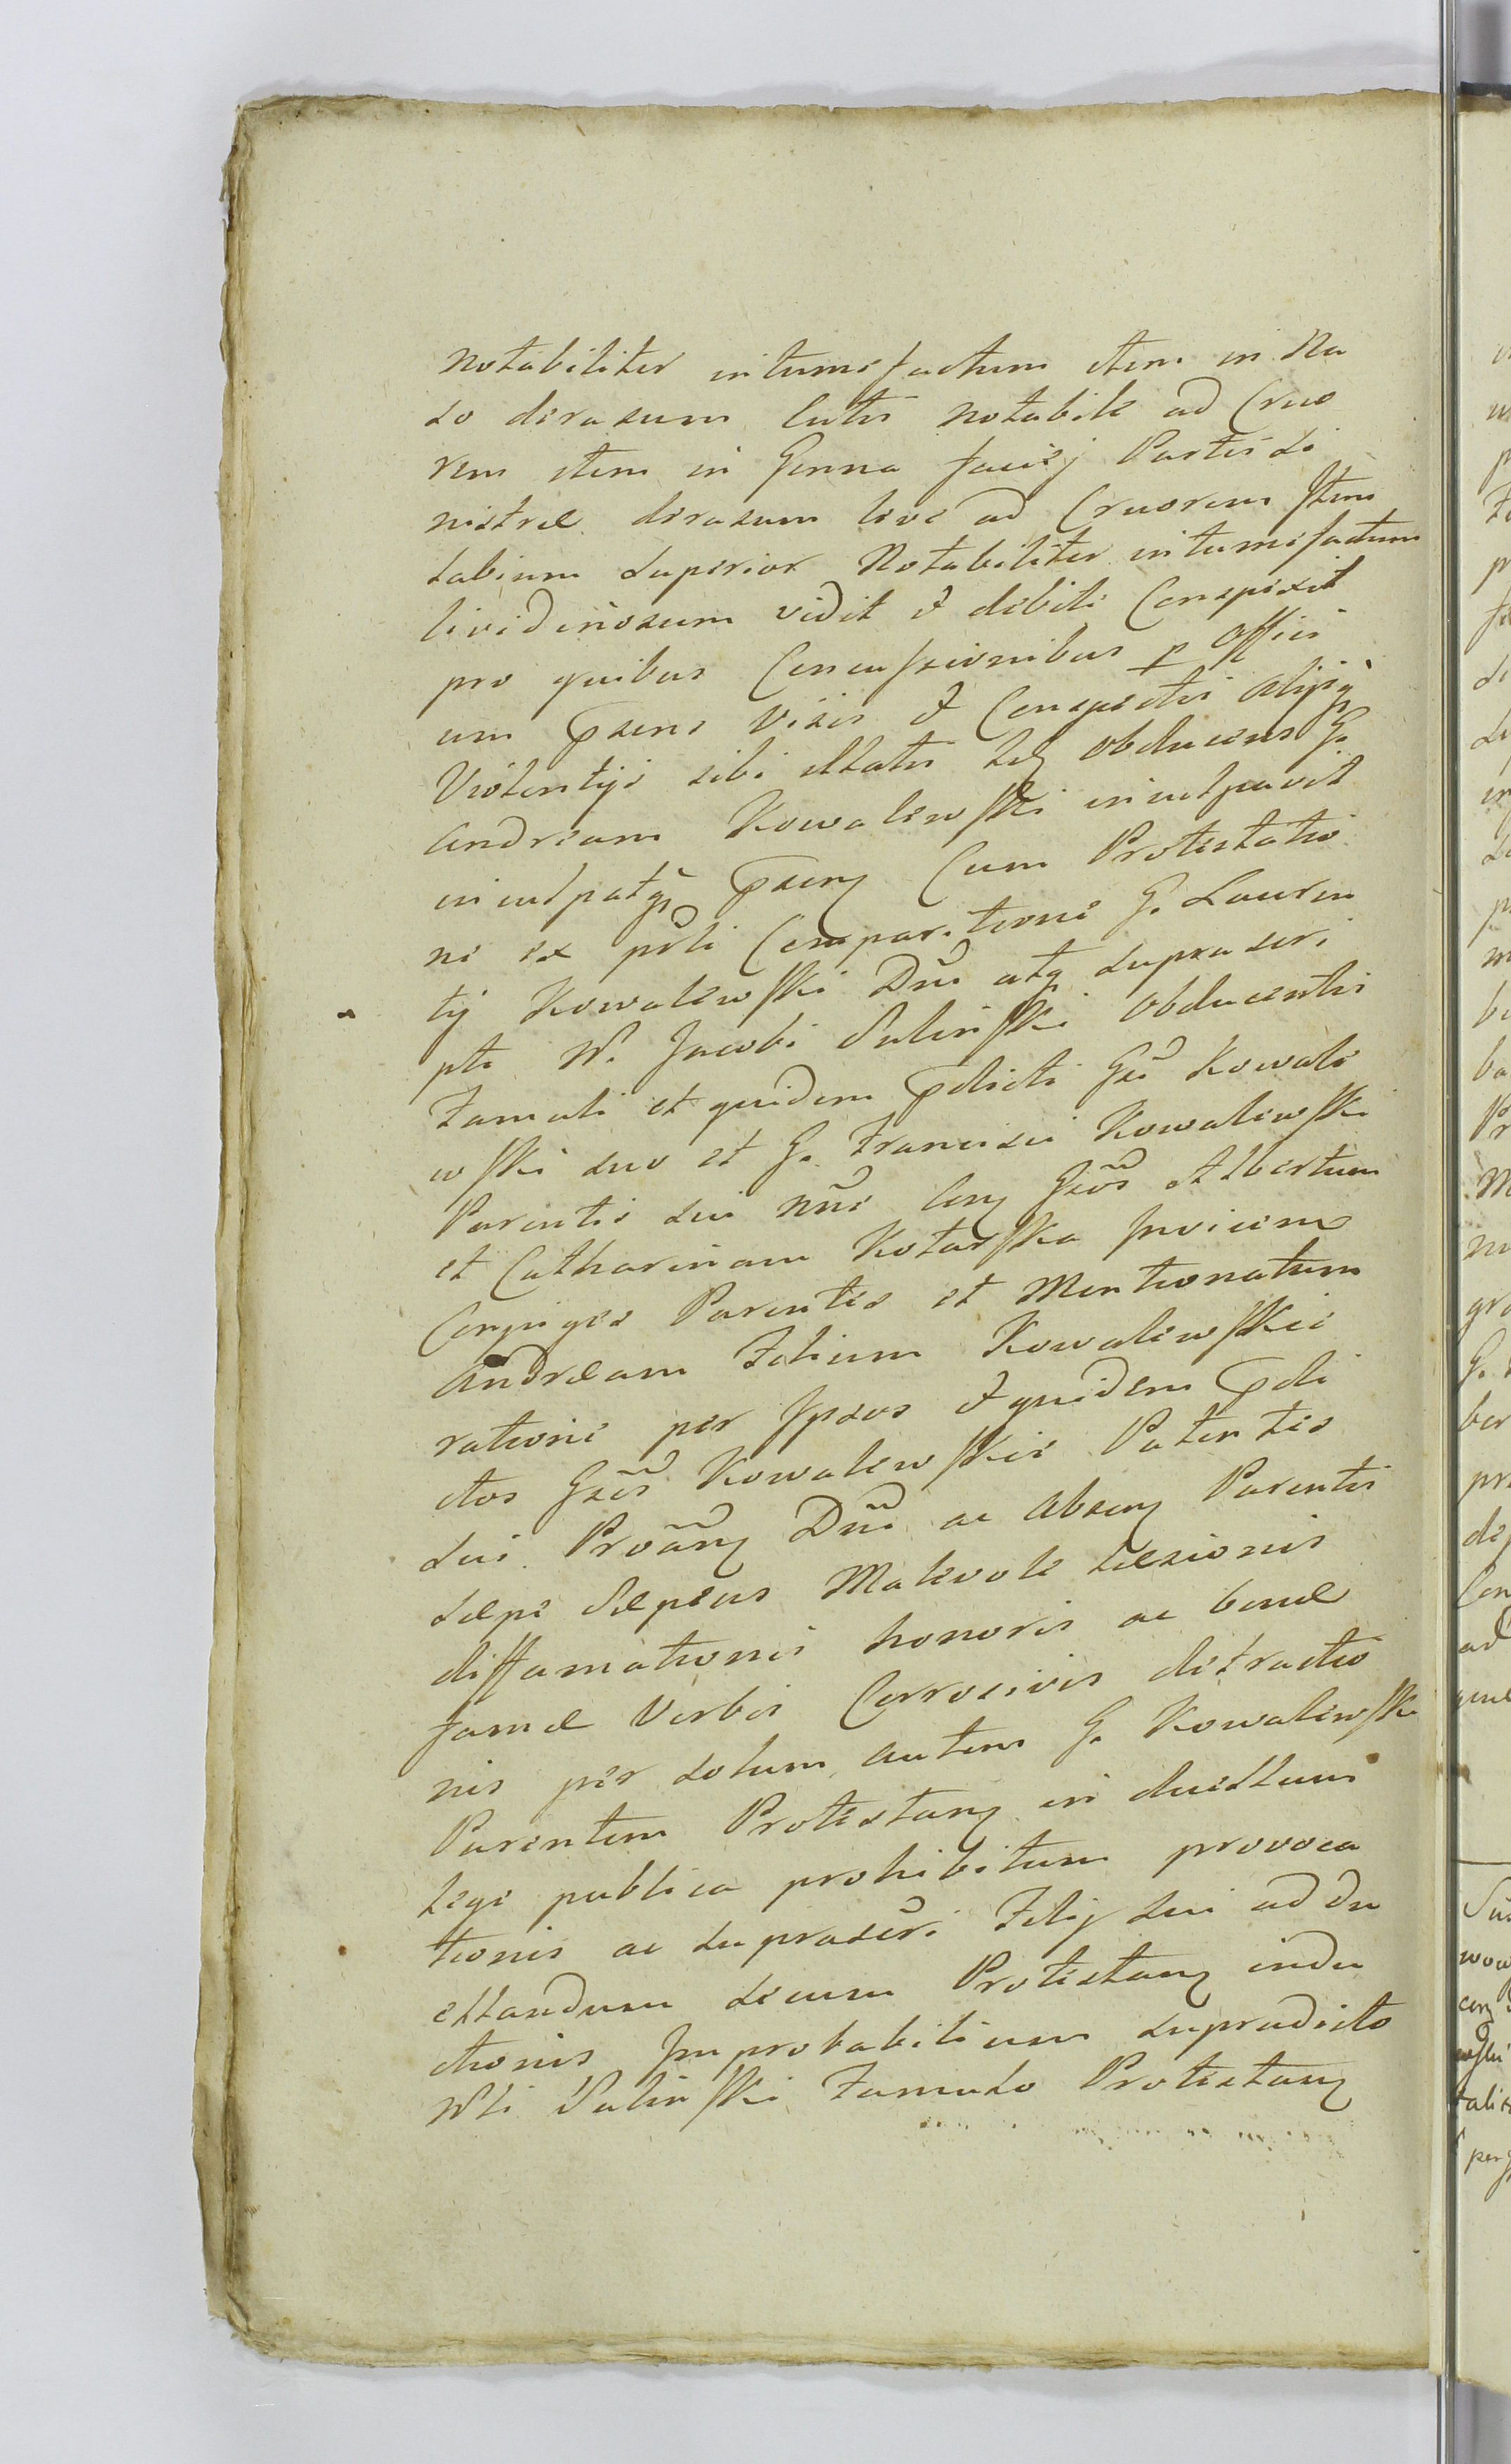 Notabiliter intumefactum item in Na
so derasum cutis notabile ad Cruo
rem item in Genna faciej Partis si
nistræ derasum leve ad Cruorem Item
Labium superior Notabiliter intumefactum
lividinosum vidit et debite Conspexit
pro quibus Concussionibus p Offici
um psens visis et Conspectis alijsq
Violentijs sibi illatis Idem obducens G.
Andream Kowalewski inculpavit
inculpatq psens Cum Protestatio
ne ex psti Comparitione G. Lauren
tij Kowalewski Dni atq suprascri
pti W. Jacobi Suliński obducentis
Famuli et quidem pdicti Gsi Kowale
wski suo et G. Francisci Kowalewski
Parentis sui nne Con Gsos Albertum
et Catharinam Kotarska Invicem
Conjuges Parentes et Mentionatum
Andream Filium Kowalewskie
ratione per Ipsos et quidem pdi
ctos Gses Kowalewskie Parentes
sui Proan Dni ac absen Parentis
sæpe sæpius Malevole Læsionis
diffamationis honoris ac bonæ
famæ Verbis Corrosivis detractio
nis per solum autem G. Kowalewski
Parentem Protestan in duellum
lege publica prohibitum provoca
tionis ac suprascri Filij sui ad du
ellandum secum Protestan indu
ctionis Improbabilium supradicto
Wli Suliński Famulo Protestan